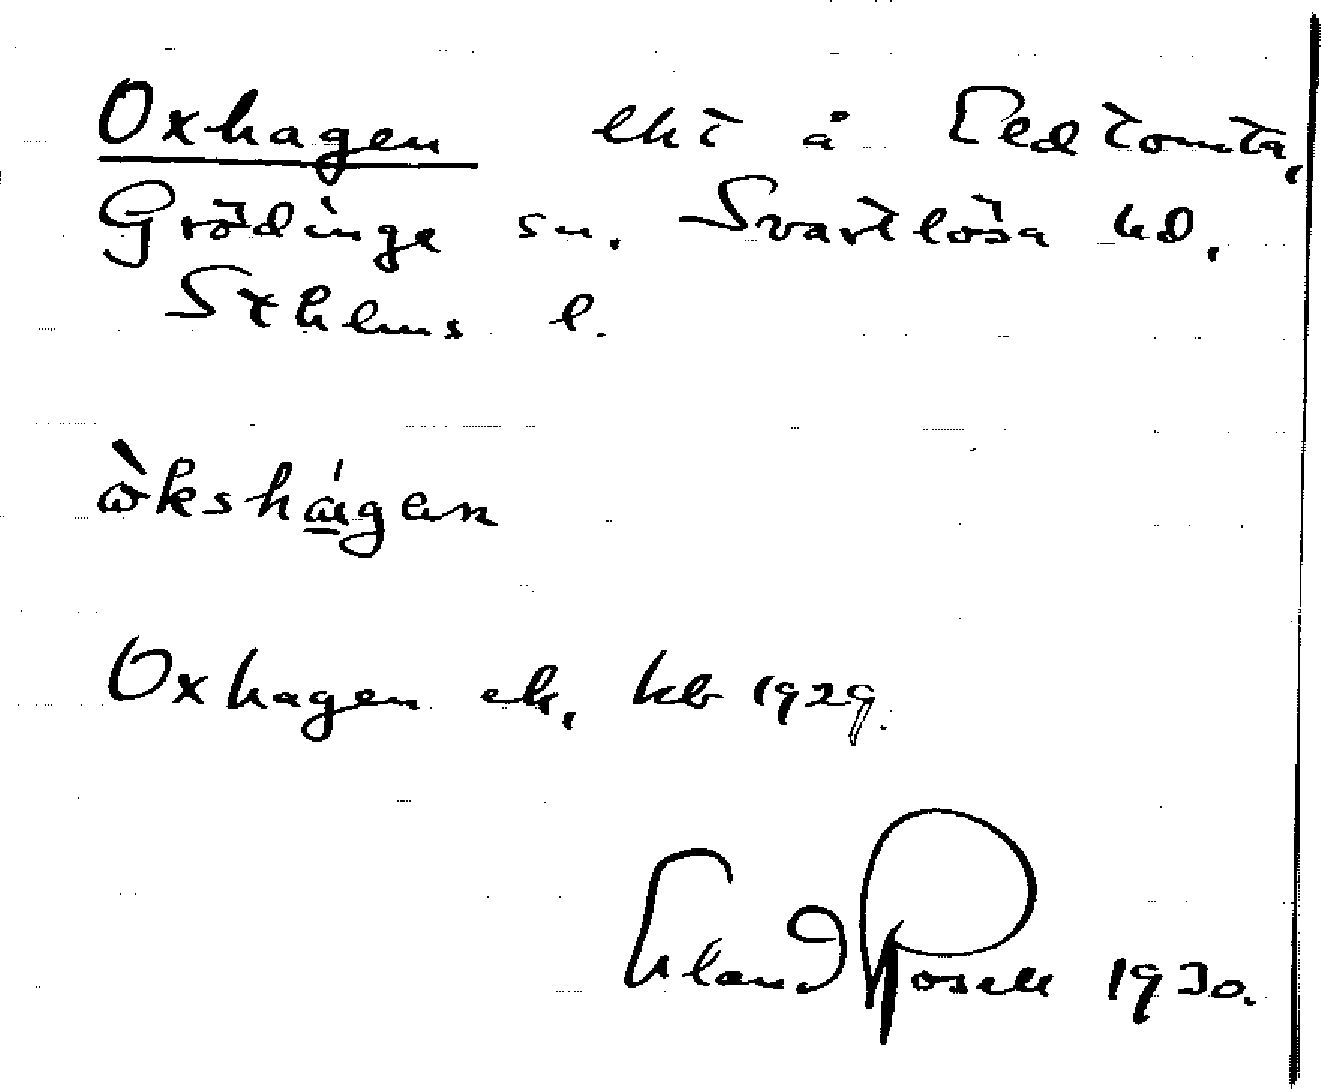 Oxhagen lht å Eldtomta,
Grödinge sn. Svartlösa hd.
Sthlms l.
òkshágen
Oxhagen eh, kb 1929.
Erland Rosell 1930.